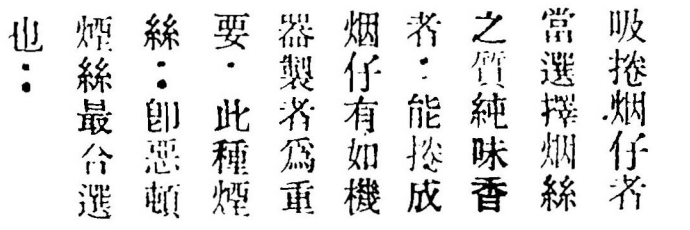 吸捲烟仔者
當選擇烟絲
之質純味香
者：能捲成
烟仔有如機
器製者爲重
要．此種煙
絲：卽惡頓
煙絲最合選
也：：